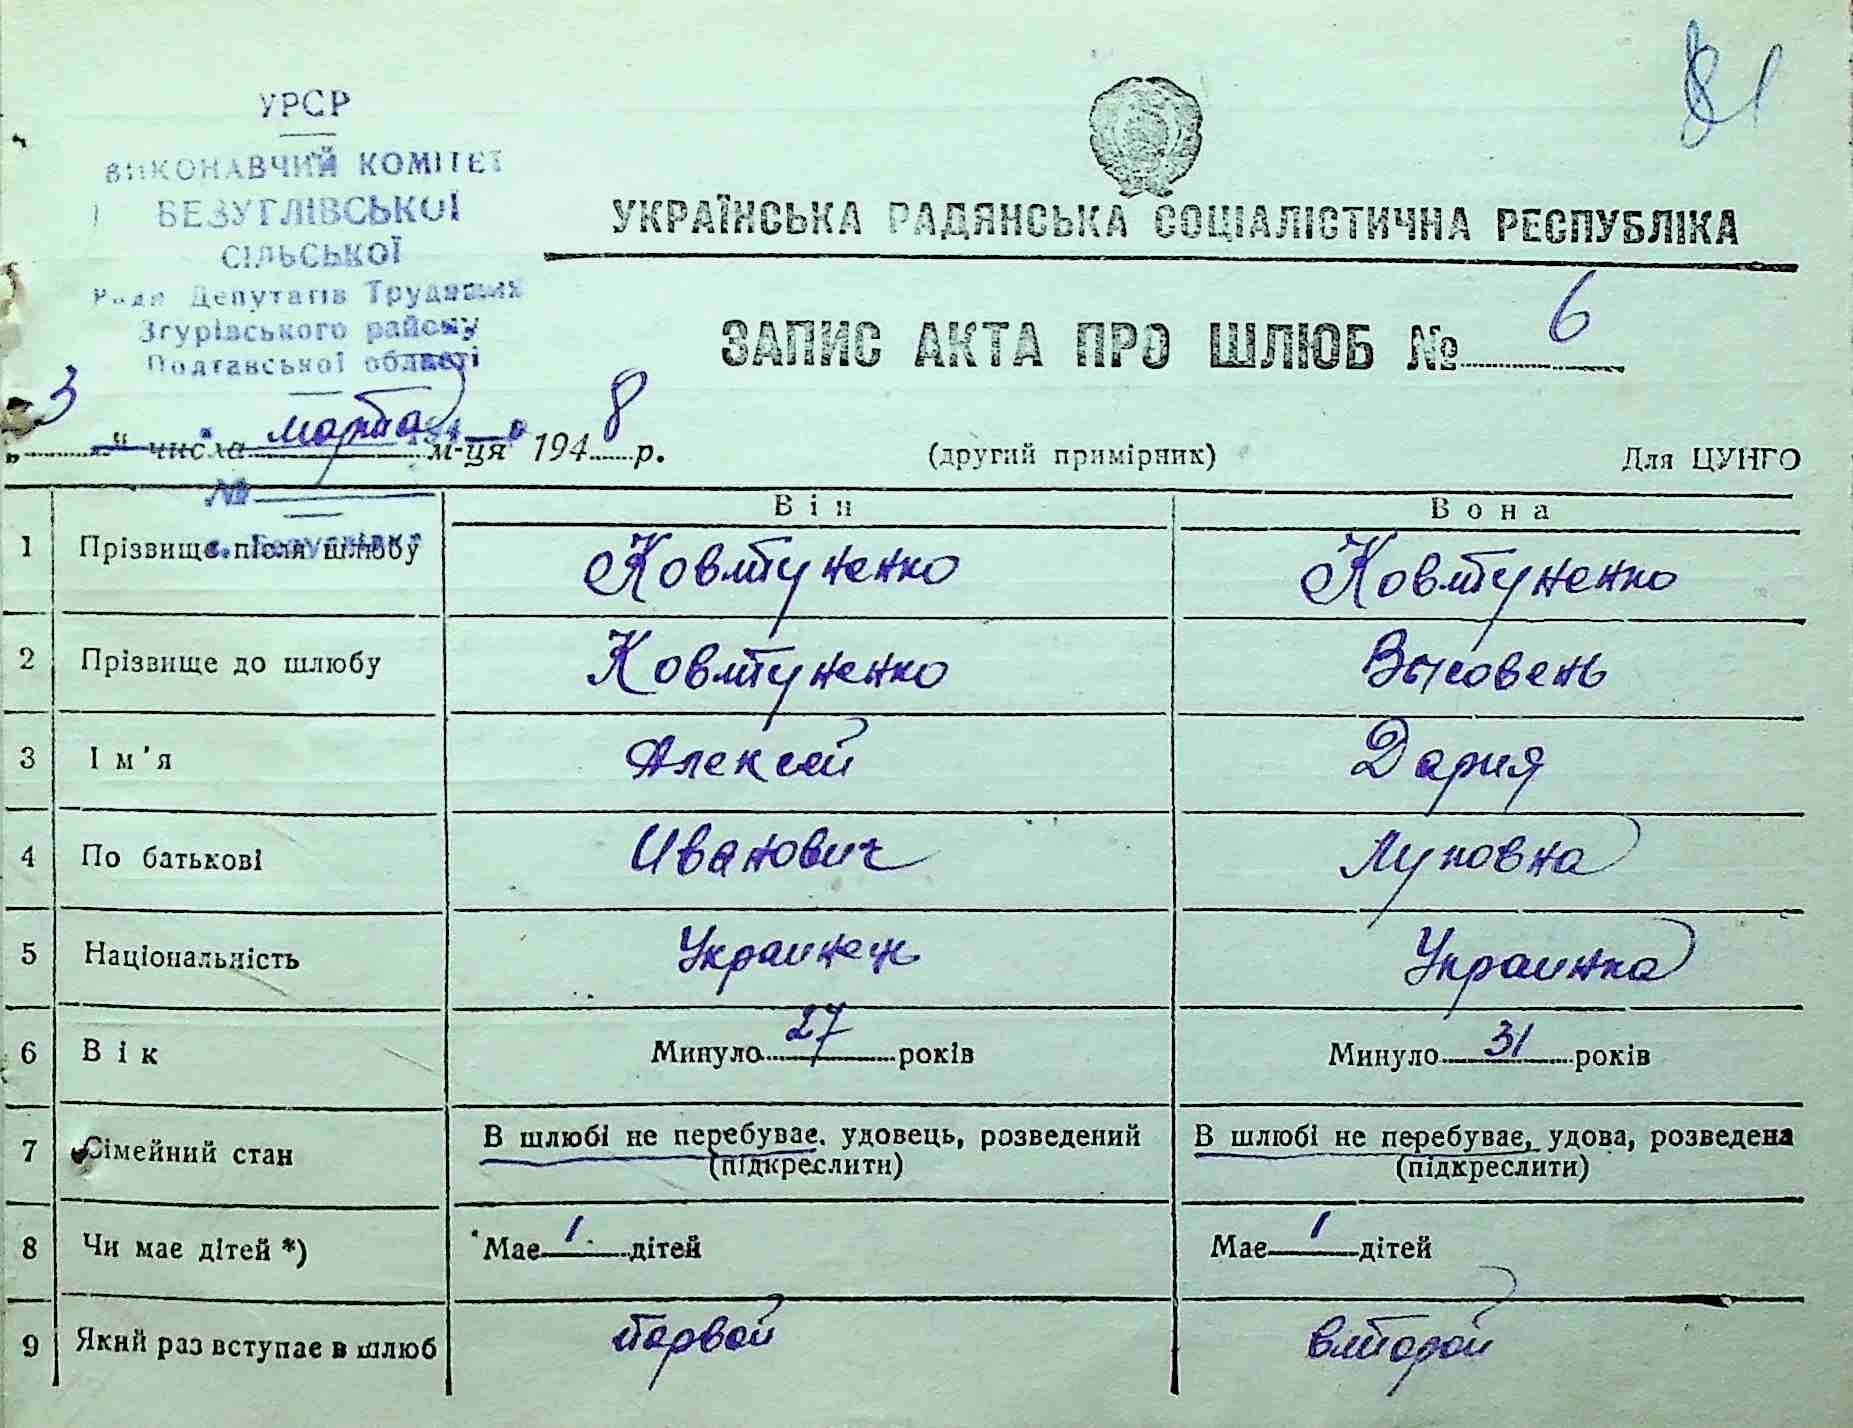 81
УРСР
ВИКОНАВЧИЙ КОМІТЕТ
БЕЗУГЛІВСЬКОЇ
СІЛЬСЬКОЇ
Ради Депутатів Трудящих
Згурівського району
Полтавської області
УКРАЇНСЬКА РАДЯНСЬКА СОЦІАЛІСТИЧНА РЕСПУБЛІКА
ЗАПИС АКТА ПРО ШЛЮБ № 6
„3" числа марта м-ця 1948 р.
(другий примірник)
Для ЦУНГО
№
Він
Вона
1 Прізвище після шлюбу Ковтуненко Ковтуненко
2 Прізвище до шлюбу Ковтуненко
3 Ім'я Алексей Дария
4 По батькові Иванович Луповна
5 Національність Украинец Украинка
6 Вік Минуло 27 років Минуло 31 років
7 Сімейний стан В шлюбі не перебуває, удовець, розведений В шлюбі не перебуває, удова, розведена
(підкреслити) (підкреслити)
8 Чи має дітей *) Має 1 дітей Має 1 дітей
9 Який раз вступає в шлюб первой второй